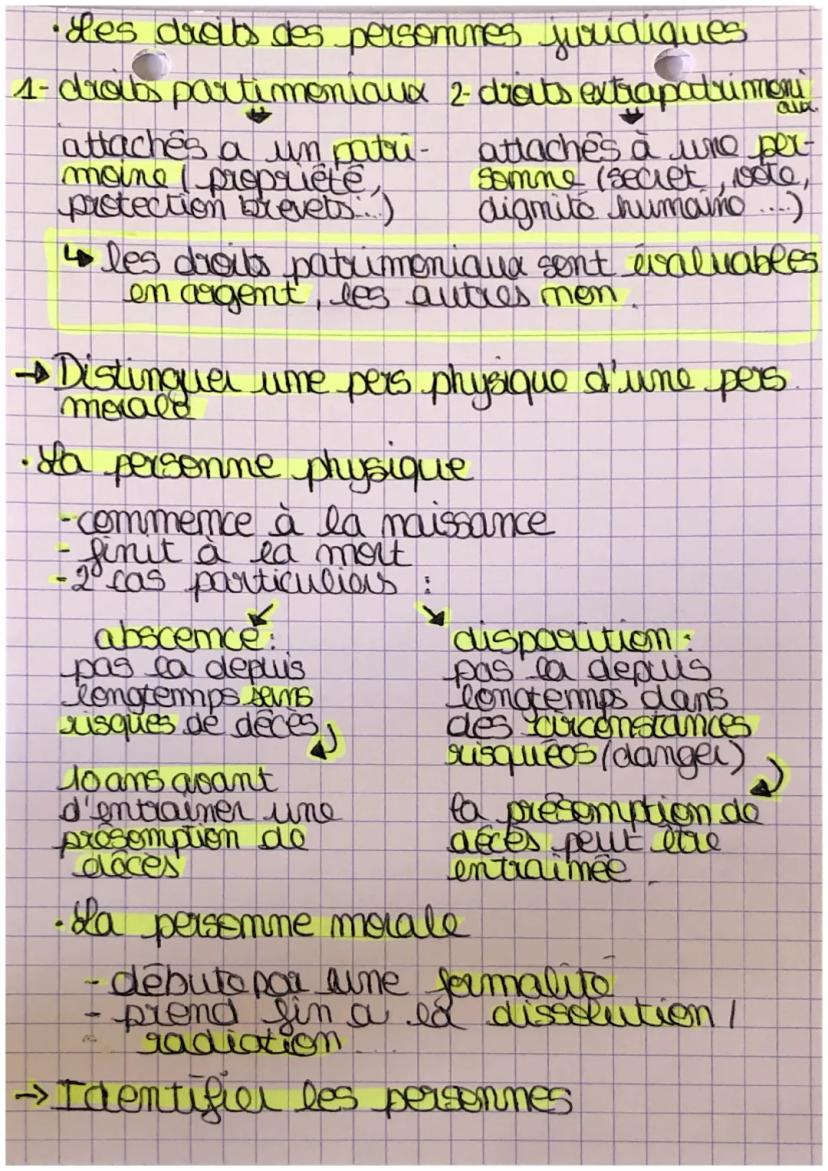 • Les droits des personnes juridiques
1- droits partimoniaux
attachés a un patri-
moine ( propriété,
protection brevets...)
2- droits extrapatrimoni
aux
attachés à une per-
sonne (secret, vote,
dignité humaine ...)
↳ les droits patrimoniaux sont évaluables
en argent, les autres non.
→ Distinguer une pers physique d'une pers.
morale
• La personne physique
- commence à la naissance
- finit à la mort
- 2 cas particuliers :
abscence :
pas la depuis
longtemps sans
risques de décès
10 ans avant
d'entrainer une
présomption de
décès
disparition :
pas la depuis
longtemps dans
des circonstances
risquées (danger)
la présomption de
décès peut être
entrainée.
• La personne morale
- débute par une formalité
- prend fin a la dissolution /
radiation
→ Identifier les personnes